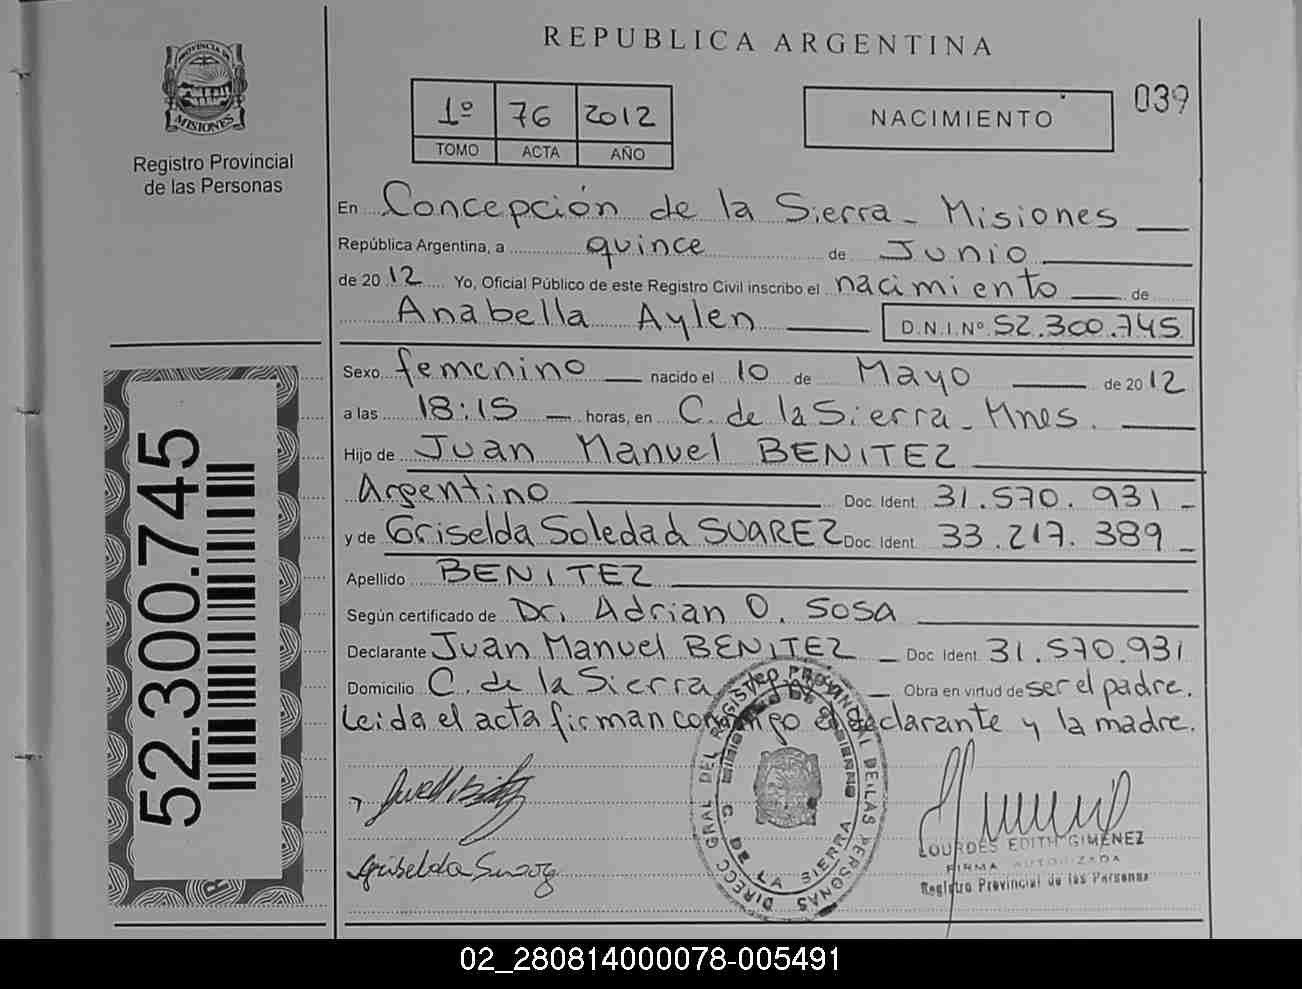 REPUBLICA ARGENTINA
PROVINCIA DE
MISIONES
Registro Provincial
de las Personas
1º 76 2012
TOMO ACTA AÑO
NACIMIENTO
039
En Concepción de la Sierra - Misiones
República Argentina, a quince de Junio
de 2012 Yo, Oficial Público de este Registro Civil inscribo el nacimiento de
Anabella Aylen D.N.I.Nº 52.300.745
Sexo femenino nacido el 10 de Mayo de 2012
a las 18:15 horas, en C. de la Sierra - Mnes.
Hijo de Juan Manuel BENITEZ
Argentino Doc. Ident. 31.570.931
y de Griselda Soledad SUAREZ Doc. Ident. 33.217.389
Apellido BENITEZ
Según certificado de Dr. Adrian O. SOSA
Declarante Juan Manuel BENITEZ Doc. Ident. 31.570.931
Domicilio C. de la Sierra Obra en virtud de ser el padre.
Leida el acta firman conmigo el declarante y la madre.
52.300.745
Griselda Suarez
DIRECC GRAL DEL REGISTRO PROVINCIAL DE LAS PERSONAS
C. DE LA SIERRA
LOURDES EDITH GIMENEZ
FIRMA AUTORIZADA
Registro Provincial de las Personas
02_280814000078-005491